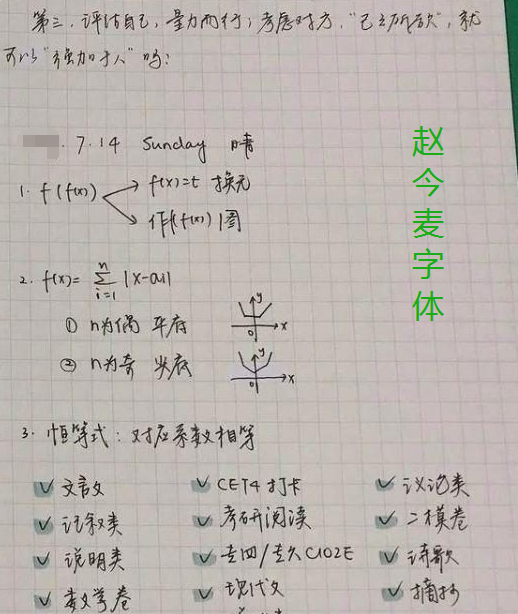 第三,评估自己,量力而行;考虑对方,“己之所欲”,就
可以“强加于人”吗?
7.14 Sunday 晴
赵今麦字体
1. f(f(x)) f(x)=t 换元
作f(f(x))图
2. f(x)= n∑i=1 |x-ai|
① n为偶 平底
y
x
0
② n为奇 尖底
y
x
0
3. 恒等式:对应系数相等
文言文 CET4打卡 议论类
记叙类 考研阅读 二模卷
说明类 专四/专八CLOZE 诗歌
数学卷 现代文 摘抄